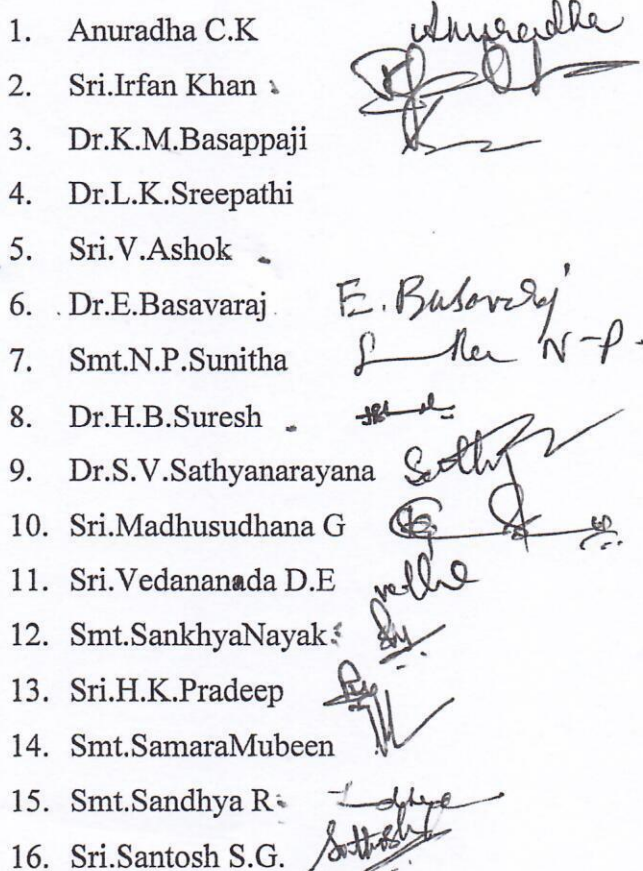 1. Anuradha C.K Anuradha
2. Sri.Irfan Khan
3. Dr.K.M.Basappaji
4. Dr.L.K.Sreepathi
5. Sri.V.Ashok
6. Dr.E.Basavaraj E. Basavaraj
7. Smt.N.P.Sunitha N-P-
8. Dr.H.B.Suresh
9. Dr.S.V.Sathyanarayana
10. Sri.Madhusudhana G
11. Sri.Vedananada D.E
12. Smt.SankhyaNayak
13. Sri.H.K.Pradeep
14. Smt.SamaraMubeen
15. Smt.Sandhya R
16. Sri.Santosh S.G.